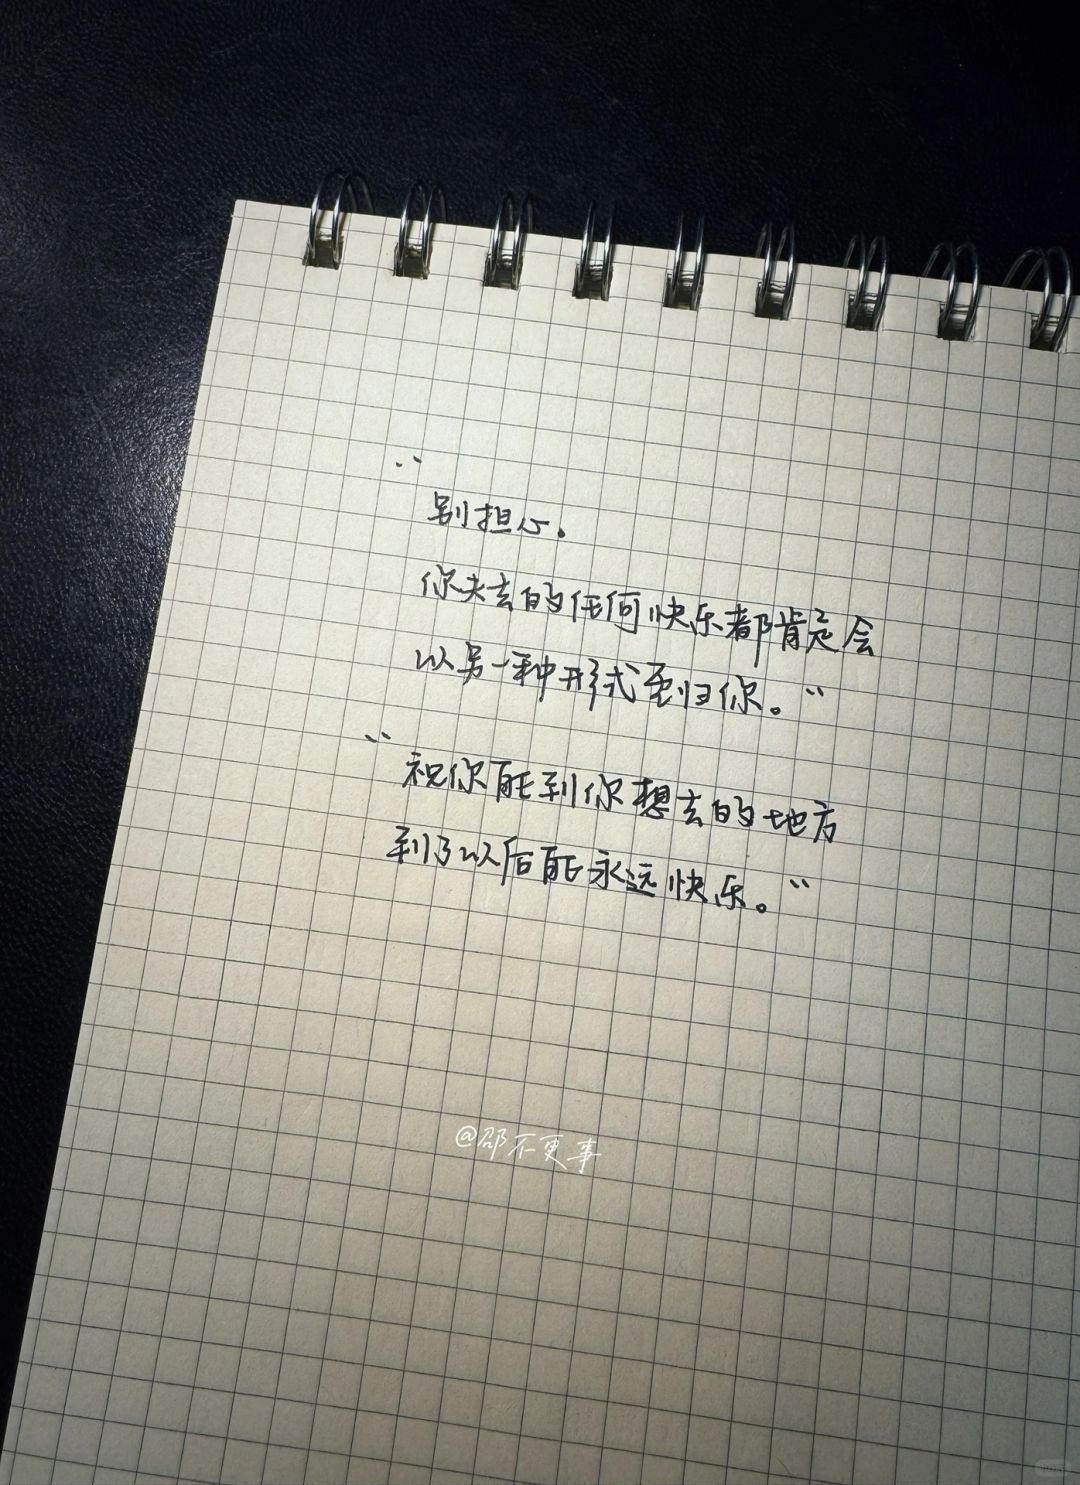 “
别担心。
你失去的任何快乐都肯定会
以另一种形式重归你。”
“祝你能到你想去的地方
到了以后能永远快乐。”
@邵不更事